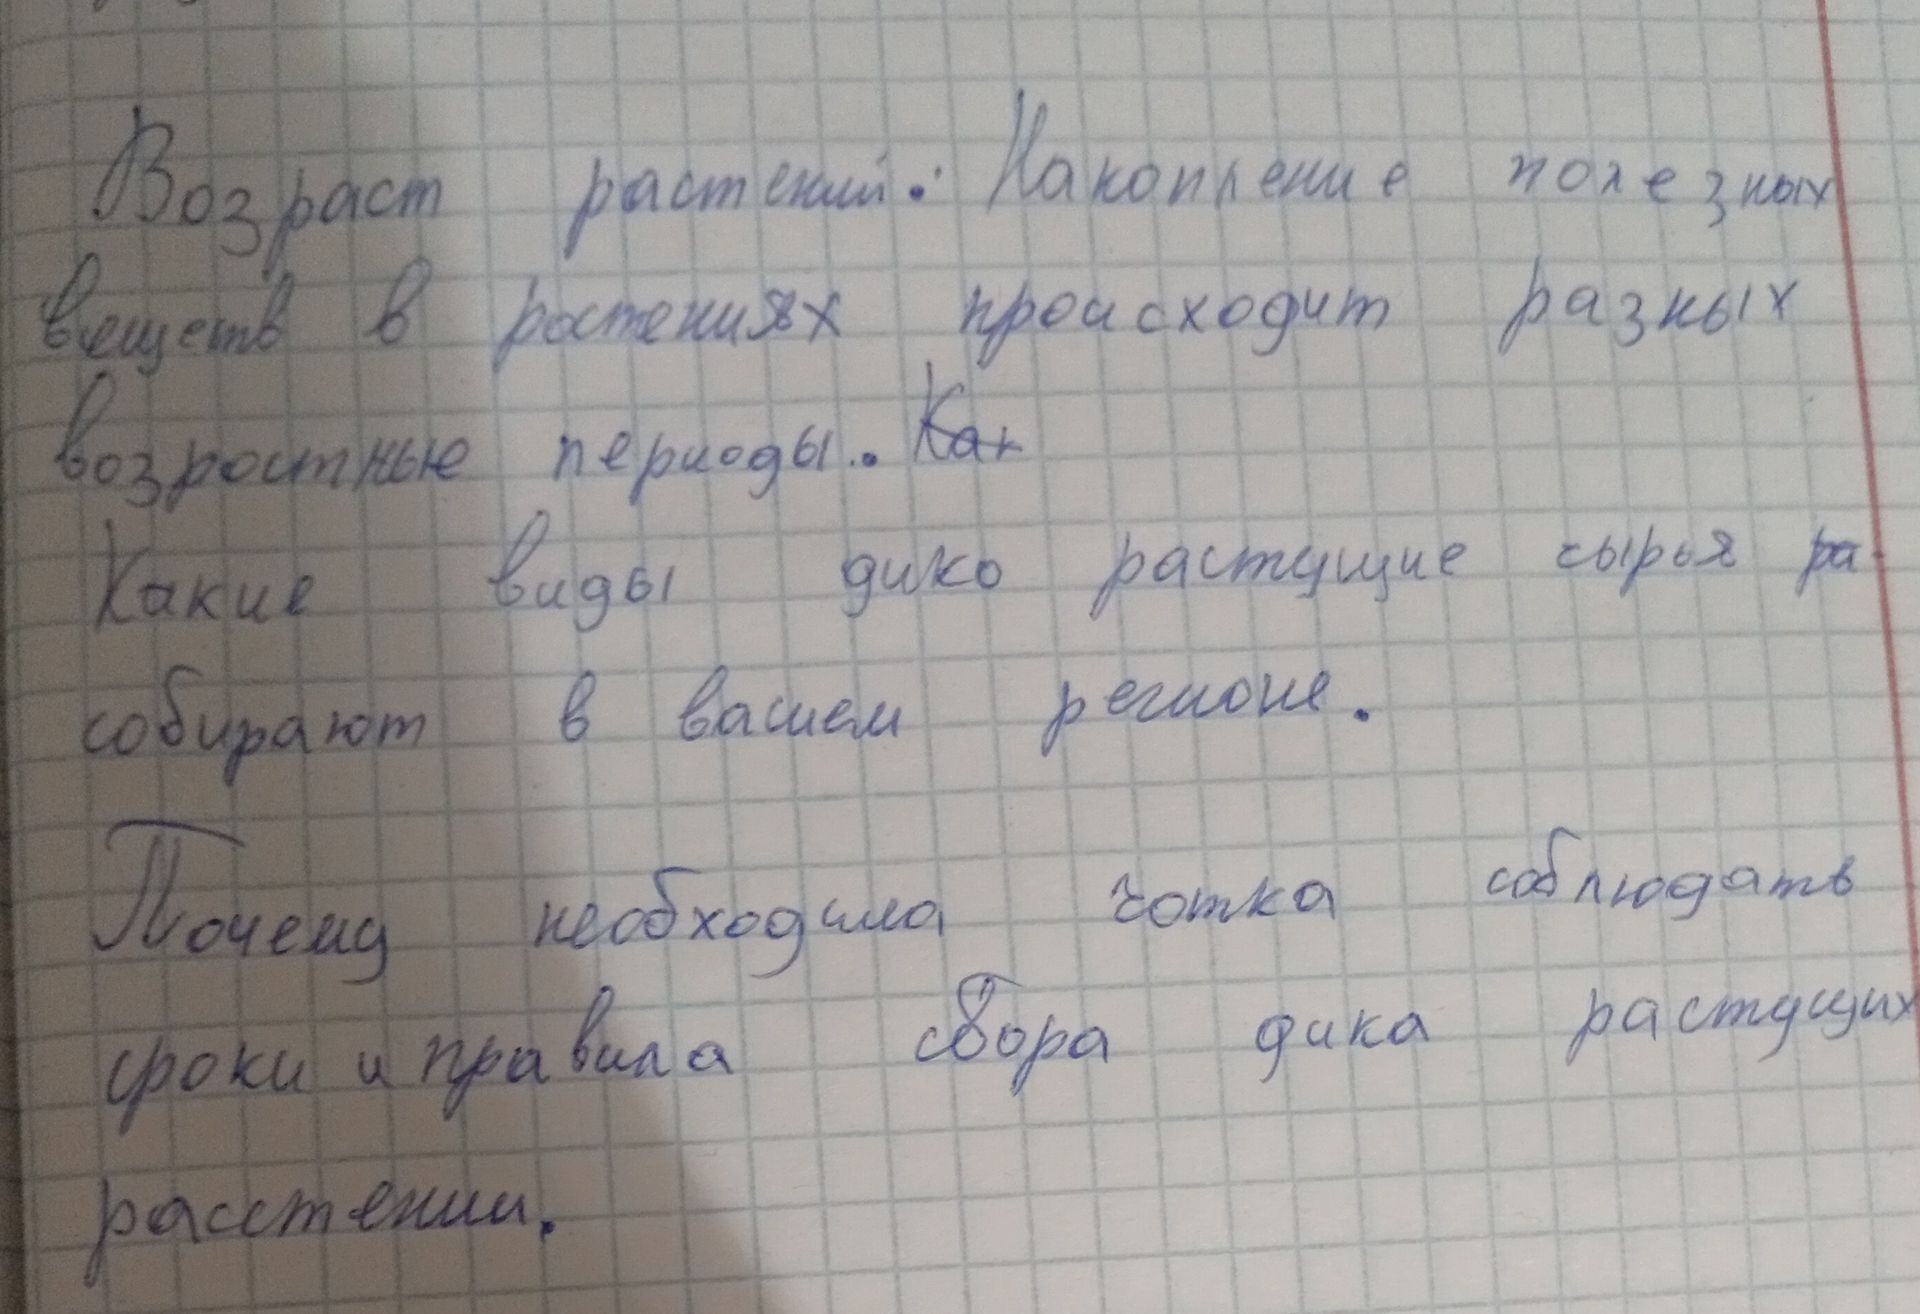 Возраст растений. Накопление полезных
веществ в ростениях происходит разных
возростные периоды. Как
Какие виды дико растущие сырья ра
собирают в вашем регионе.
Почему необходима чотка соблюдать
сроки и правила сбора дика растущих
расстении.